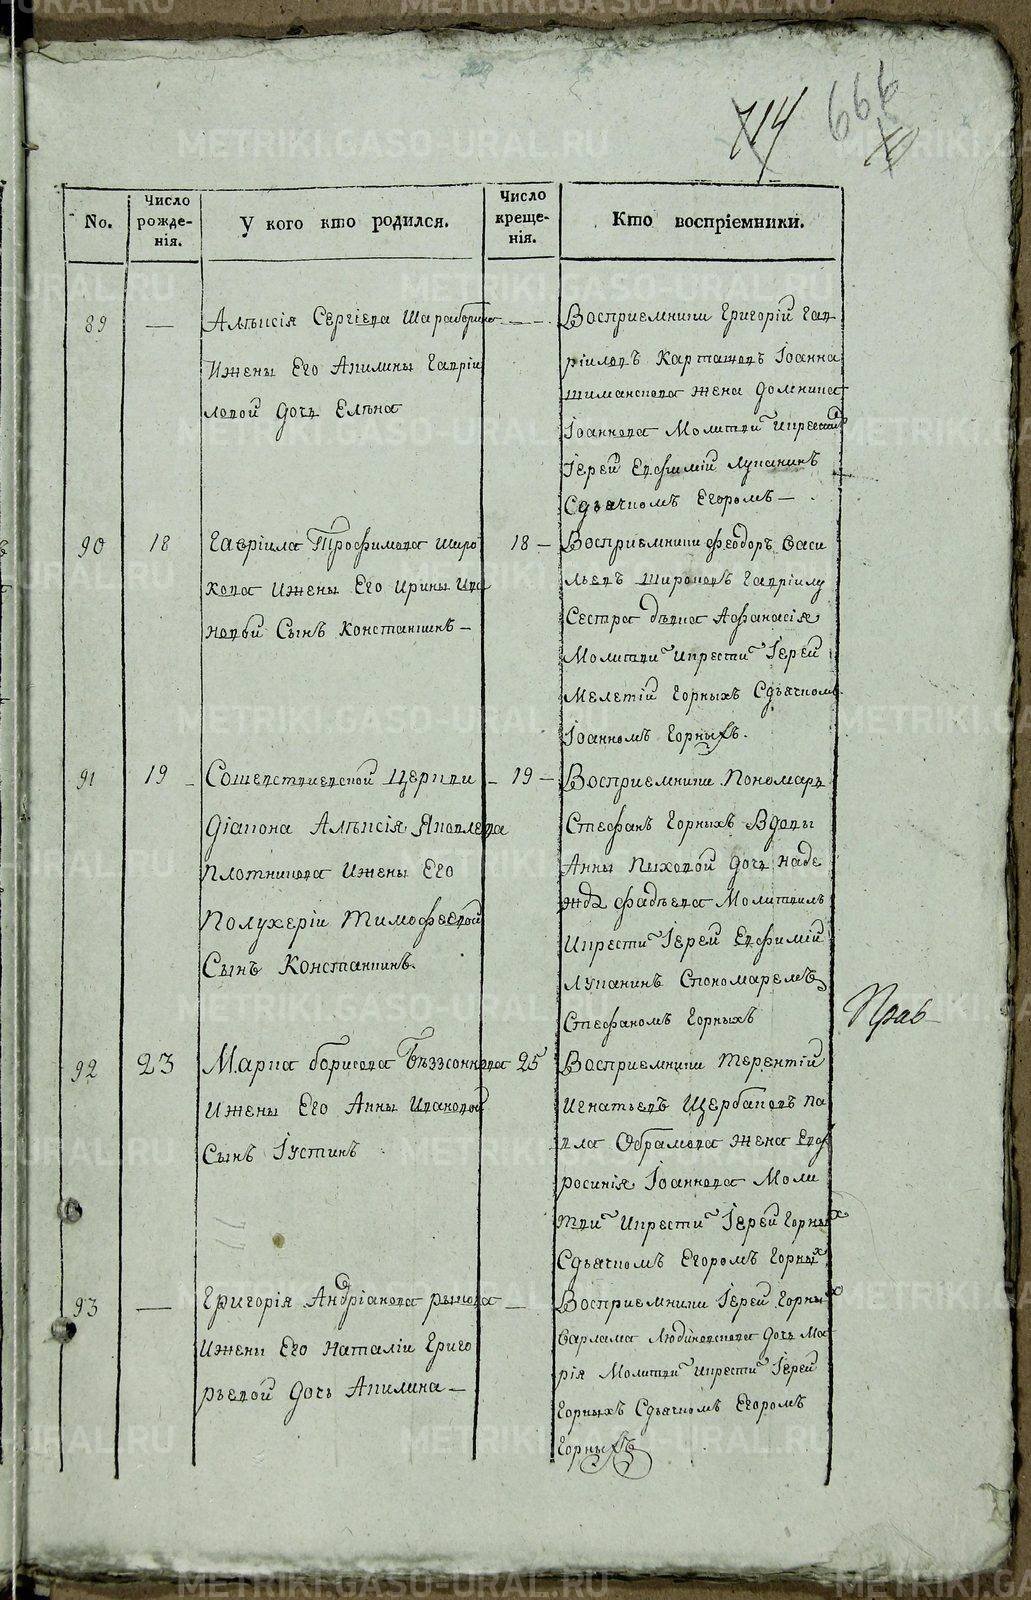 714
666
70
No.
Число рожденія.
У кого кто родился.
Число крещенія.
Кто воспріемники.
89 —
Алѣксія Сергіева Шараборина —
Ижены Его Акилины Гавріи
ловой дочь Елѣна
Восприемники Григорій Гав
ріиловъ Карташовъ Іоанна
Шиманскова жена Домника
Іоаннова Молитви Икрести
Іерей Евфимій Луканинъ
Сдьячкомъ Егоромъ —
90 18
Гавріила Трофимова широ
кова Ижены Его Ирины Ива
новой Сынъ Константинъ —
18 —
Восприемники Феодоръ Васи
льевъ Широковъ Гаврiилу
Сестра дѣвка Афанасія
Молитви Икрести Іерей
Мелетій Горныхъ Сдьячкомъ
Іоанномъ Горныхъ.
91 19
Сошественской Церкви
Діакона Алѣксія Яковлева
Плотникова Ижены Его
Полухеріи Тимофеевой
Сынъ Константинъ.
19 —
Восприемники Пономарь
Стефанъ Горныхъ Вдовы
Анны Пыховой дочь Наде
жда Фадѣева Молитвилъ
Икрести Іерей Евфимій
Луканинъ Спономаремъ
Стефаномъ Горныхъ
Прав
92 23
Марка борисова Бѣззсоннова
Ижены Его Анны Ивановой
Сынъ Іустинъ
25
Восприемники Терентій
Игнатьевъ Щербаковъ Па
вла Обрамова жена Евф
росинія Іоаннова Моли
тви Икрести Іерей Горных
Сдьячкомъ Егоромъ Горных
93 —
Григорія Андріанова рыкова —
Ижены Его Наталіи Григо
рьевой дочь Акилина —
Восприемники Іерей Горных
Варлама Людиновскова дочь Ма
рія Молитви Икрести Іерей
Горныхъ Сдьячкомъ Егоромъ
Горныхъ
METRIKI.GASO-URAL.RU